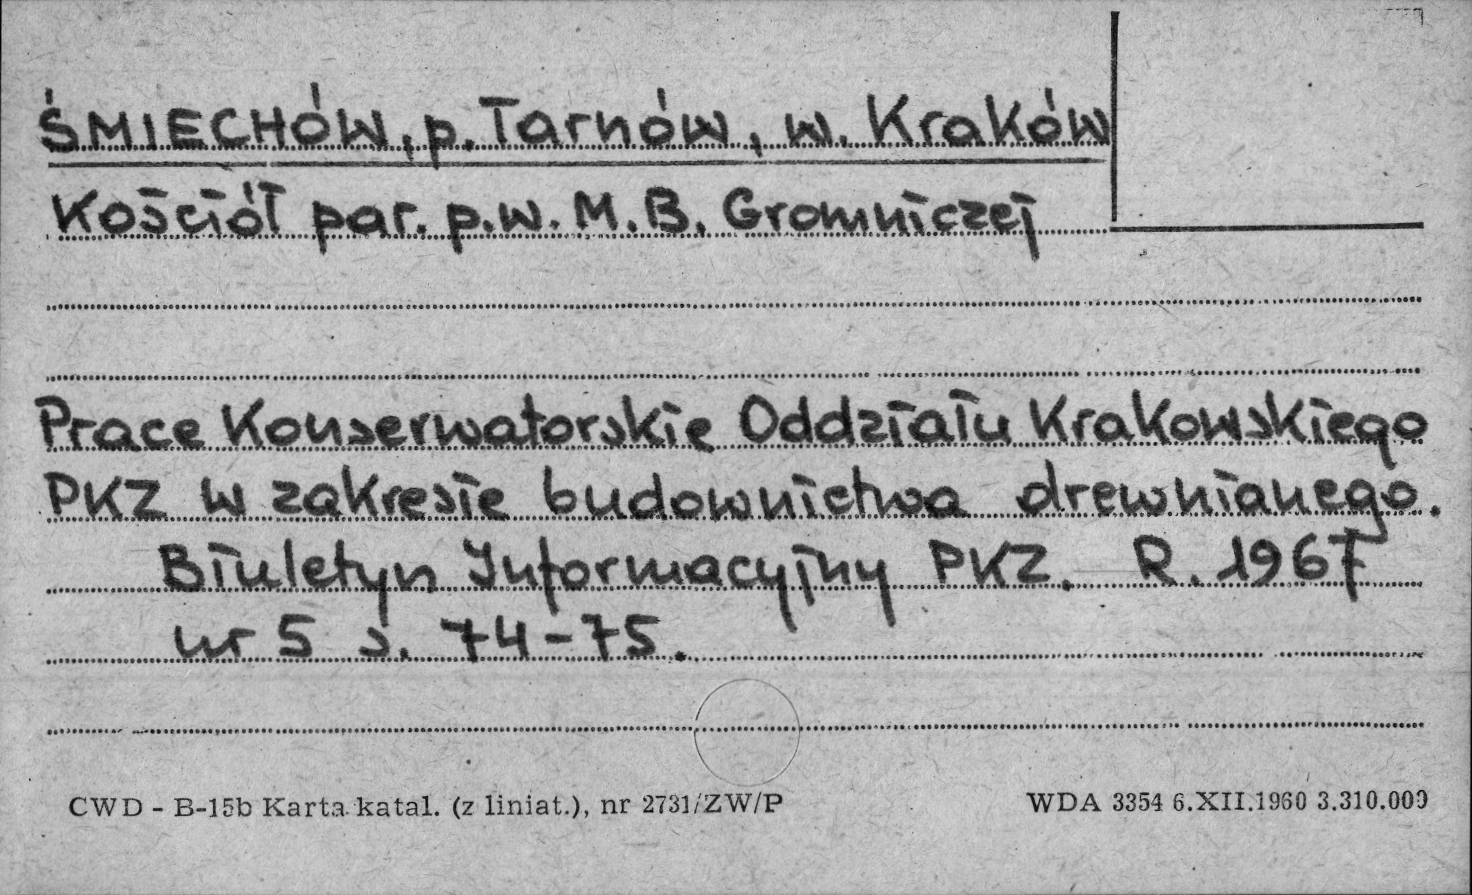 ŚMIECHÓW, p. Tarnów, w. Kraków
Kościół par. p.w. M.B. Gromniczej
Prace Konserwatorskie Oddziału Krakowskiego
PKZ w zakresie budownictwa drewnianego.
Biuletyn Informacyjny PKZ. R. 1967
nr 5 s. 74-75.
CWD - B-15b Karta katal. (z liniat.), nr 2731/ZW/P
WDA 3354 6.XII.1960 3.310.000